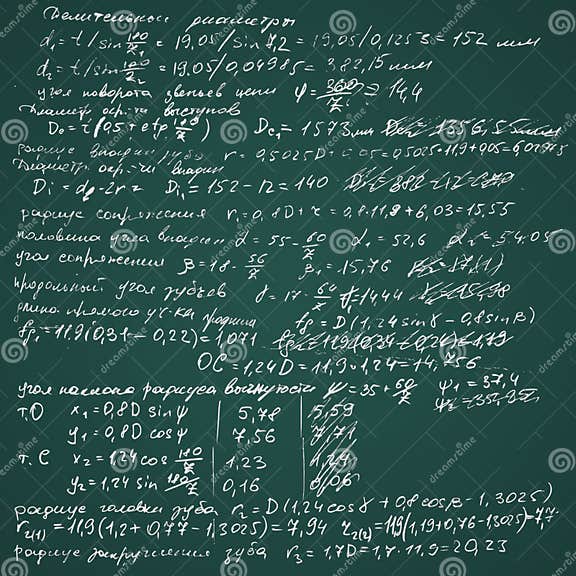 Делительные диаметры
d₁ = t/sin 180/z₁ = 19,05/sin 7,2 = 19,05/0,1253 = 152 мм
d₂ = t/sin 180/z₂ = 19,05/0,04985 = 382,15 мм
угол поворота звеньев цепи φ = 360/z = 14,4
Диаметр окр-ти выступов
De = t(0,5 + ctg 180/z) De₁ = 157,3 мм
радиус впадин зуба r = 0,5025D + 0,05 = 0,5025·11,9 + 0,05 = 6,02975
Диаметр окр-ти впадин
Di = d₂ - 2r = Di₁ = 152 - 12 = 140
радиус сопряжения r₁ = 0,8D + r = 0,8·11,9 + 6,03 = 15,55
половина угла впадин α = 55 - 60/z α₁ = 52,6 α₂ = 54,05
угол сопряжения β = 18 - 56/z β₁ = 15,76
продольный угол зубьев γ = 17 - 64/z γ = 14,44
длина прямого уч-ка профиля fg = D(1,24 sin γ - 0,8 sin β)
fg₁ = 11,9(0,31 - 0,22) = 1,071
OC = 1,24D = 11,9·1,24 = 14,756
угол наклона радиуса вогнутости ψ = 35 + 60/z ψ₁ = 37,4
т.О x₁ = 0,8D sin ψ 5,78
y₁ = 0,8D cos ψ 7,56
т.С x₂ = 1,24 cos 180/z 1,23
y₂ = 1,24 sin 180/z 0,16
радиус головки зуба r₂ = D(1,24 cos γ + 0,8 cos β - 1,3025)
r₂₍₁₎ = 11,9(1,2 + 0,77 - 1,3025) = 7,94 r₂₍₂₎ = 11,9(1,19 + 0,76 - 1,3025) = 7,7
радиус закругления зуба r₃ = 1,7D = 1,7·11,9 = 20,23